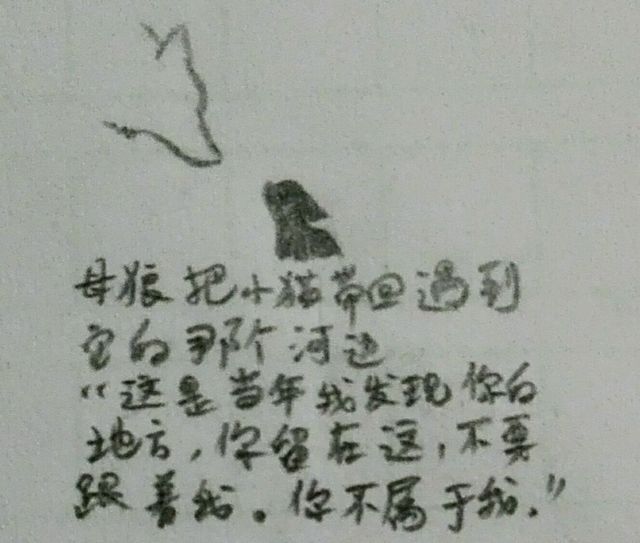 母狼把小猫带回遇到
它的那个河边
“这是当年我发现你的
地方，你留在这，不要
跟着我。你不属于我.”